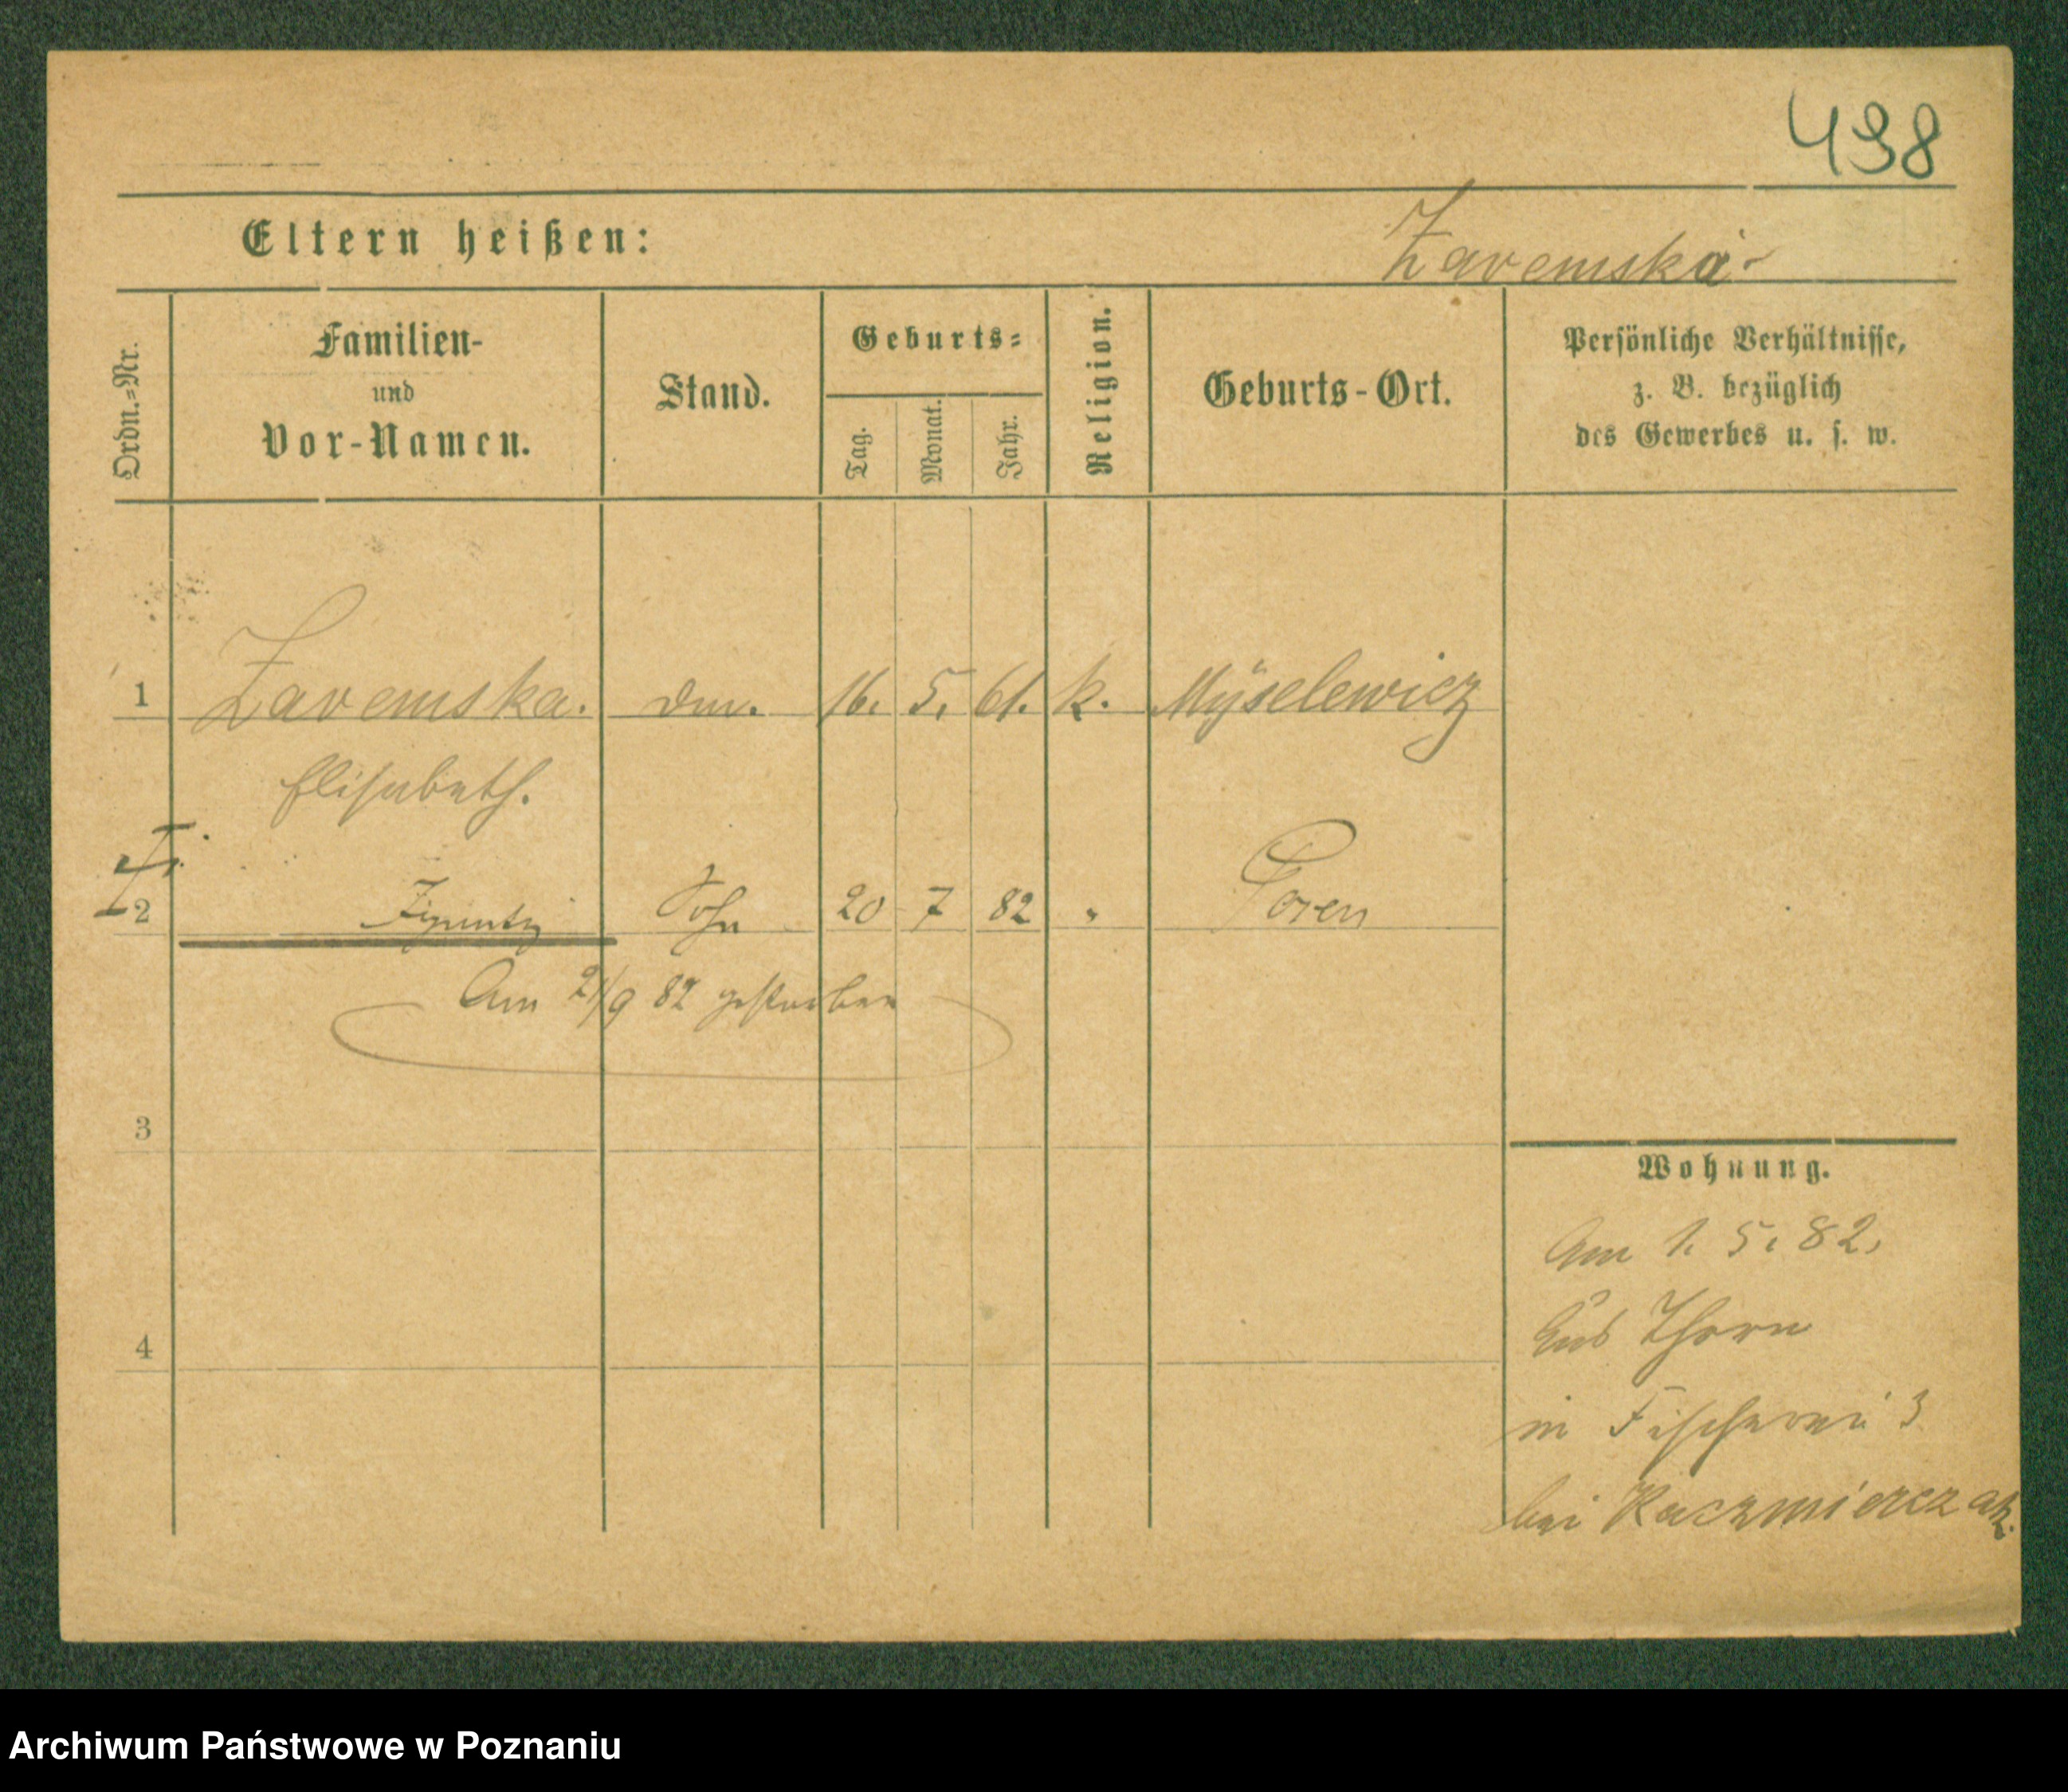 498
Eltern heißen:
Zaremska
Ordn.-Nr.
Familien-
und
Vor-Namen.
Stand.
Geburts-
Tag.
Monat.
Jahr.
Religion.
Geburts-Ort.
Persönliche Verhältnisse,
z. B. bezüglich
des Gewerbes u. s. w.
1 Zaremska. 16. 5. 61. k. Myselewicz
Elisabeth.
2 Sohn 20 7 82 " Posen
Am 21/9 82 gestorben
3
Wohnung.
Am 1. 5. 82.
aus Thorn
4
in Fischerei 3
bei Kaczmierczak.
Archiwum Państwowe w Poznaniu